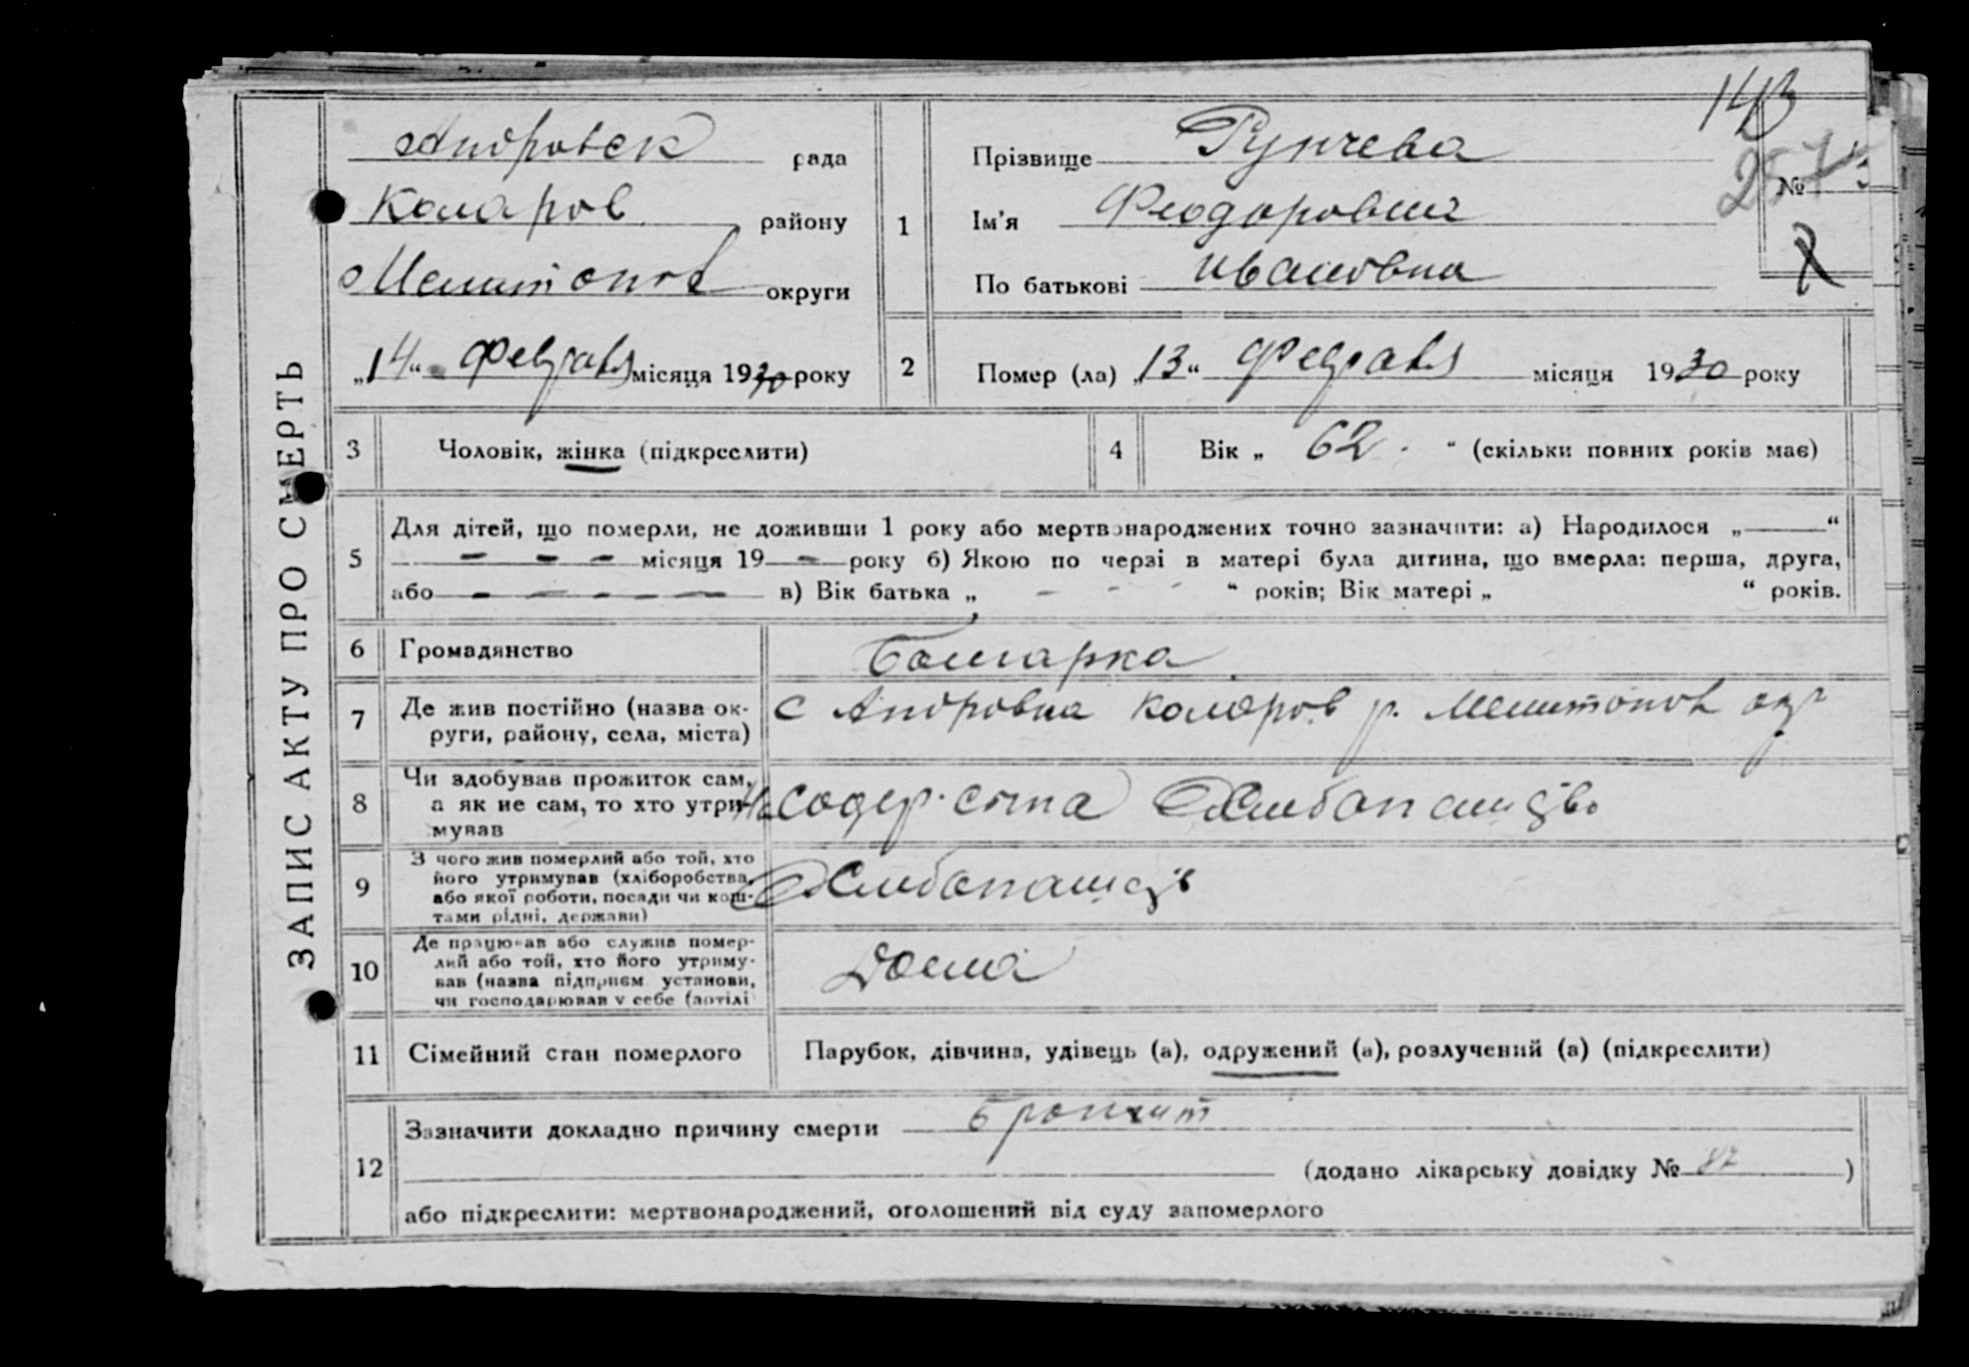 ЗАПИС АКТУ ПРО СМЕРТЬ
143
257
№
Андровск рада
Коларов району
Мелитопол округи
„14“ Февраля місяця 1930 року
1
Прізвище Рунчева
Ім'я
По батькові Ивановна
2
Помер (ла) „13“ Февраля місяця 1930 року
3
Чоловік, жінка (підкреслити)
4
Вік „ 62 “ (скільки повних років має)
5
Для дітей, що померли, не доживши 1 року або мертвонароджених точно зазначити: а) Народилося „ “
місяця 19 року б) Якою по черзі в матері була дитина, що вмерла: перша, друга,
або в) Вік батька „ “ років; Вік матері „ “ років.
6
Громадянство
Болгарка
7
Де жив постійно (назва ок-
руги, району, села, міста)
с Андровка Коларов р. Мелитопол окр
8
Чи здобував прожиток сам,
а як не сам, то хто утри-
мував
На содер. сина
9
З чого жив померлий або той, хто
його утримував (хліборобства,
або якої роботи, посади чи кош-
тами рідні, держави)
10
Де працював або служив помер-
лий або той, хто його утриму-
вав (назва підприєм установи,
чи господарював у себе (артілі
Дома
11
Сімейний стан померлого
Парубок, дівчина, удівець (а), одружений (а), розлучений (а) (підкреслити)
12
Зазначити докладно причину смерти Бронхит
(додано лікарську довідку № 82 )
або підкреслити: мертвонароджений, оголошений від суду запомерлого